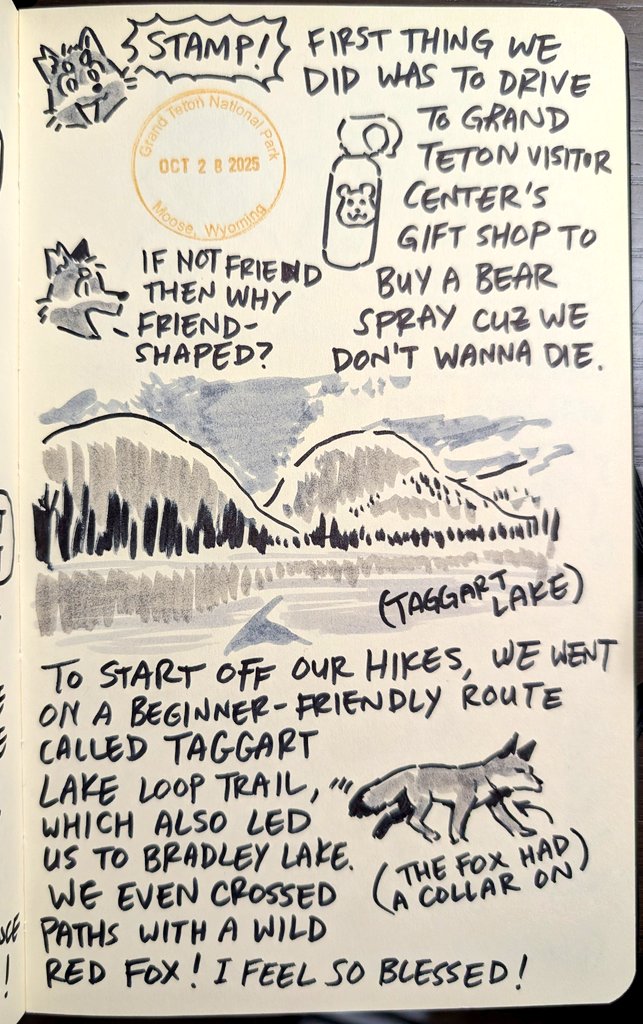 STAMP!
FIRST THING WE
DID WAS TO DRIVE
TO GRAND
TETON VISITOR
CENTER'S
GIFT SHOP TO
BUY A BEAR
SPRAY CUZ WE
DON'T WANNA DIE.
Grand Teton National Park
OCT 28 2025
Moose, Wyoming
IF NOT FRIEND
THEN WHY
FRIEND-
SHAPED?
(TAGGART
LAKE)
TO START OFF OUR HIKES, WE WENT
ON A BEGINNER-FRIENDLY ROUTE
CALLED TAGGART
LAKE LOOP TRAIL,
WHICH ALSO LED
US TO BRADLEY LAKE.
WE EVEN CROSSED
PATHS WITH A WILD
RED FOX! I FEEL SO BLESSED!
(THE FOX HAD
A COLLAR ON)